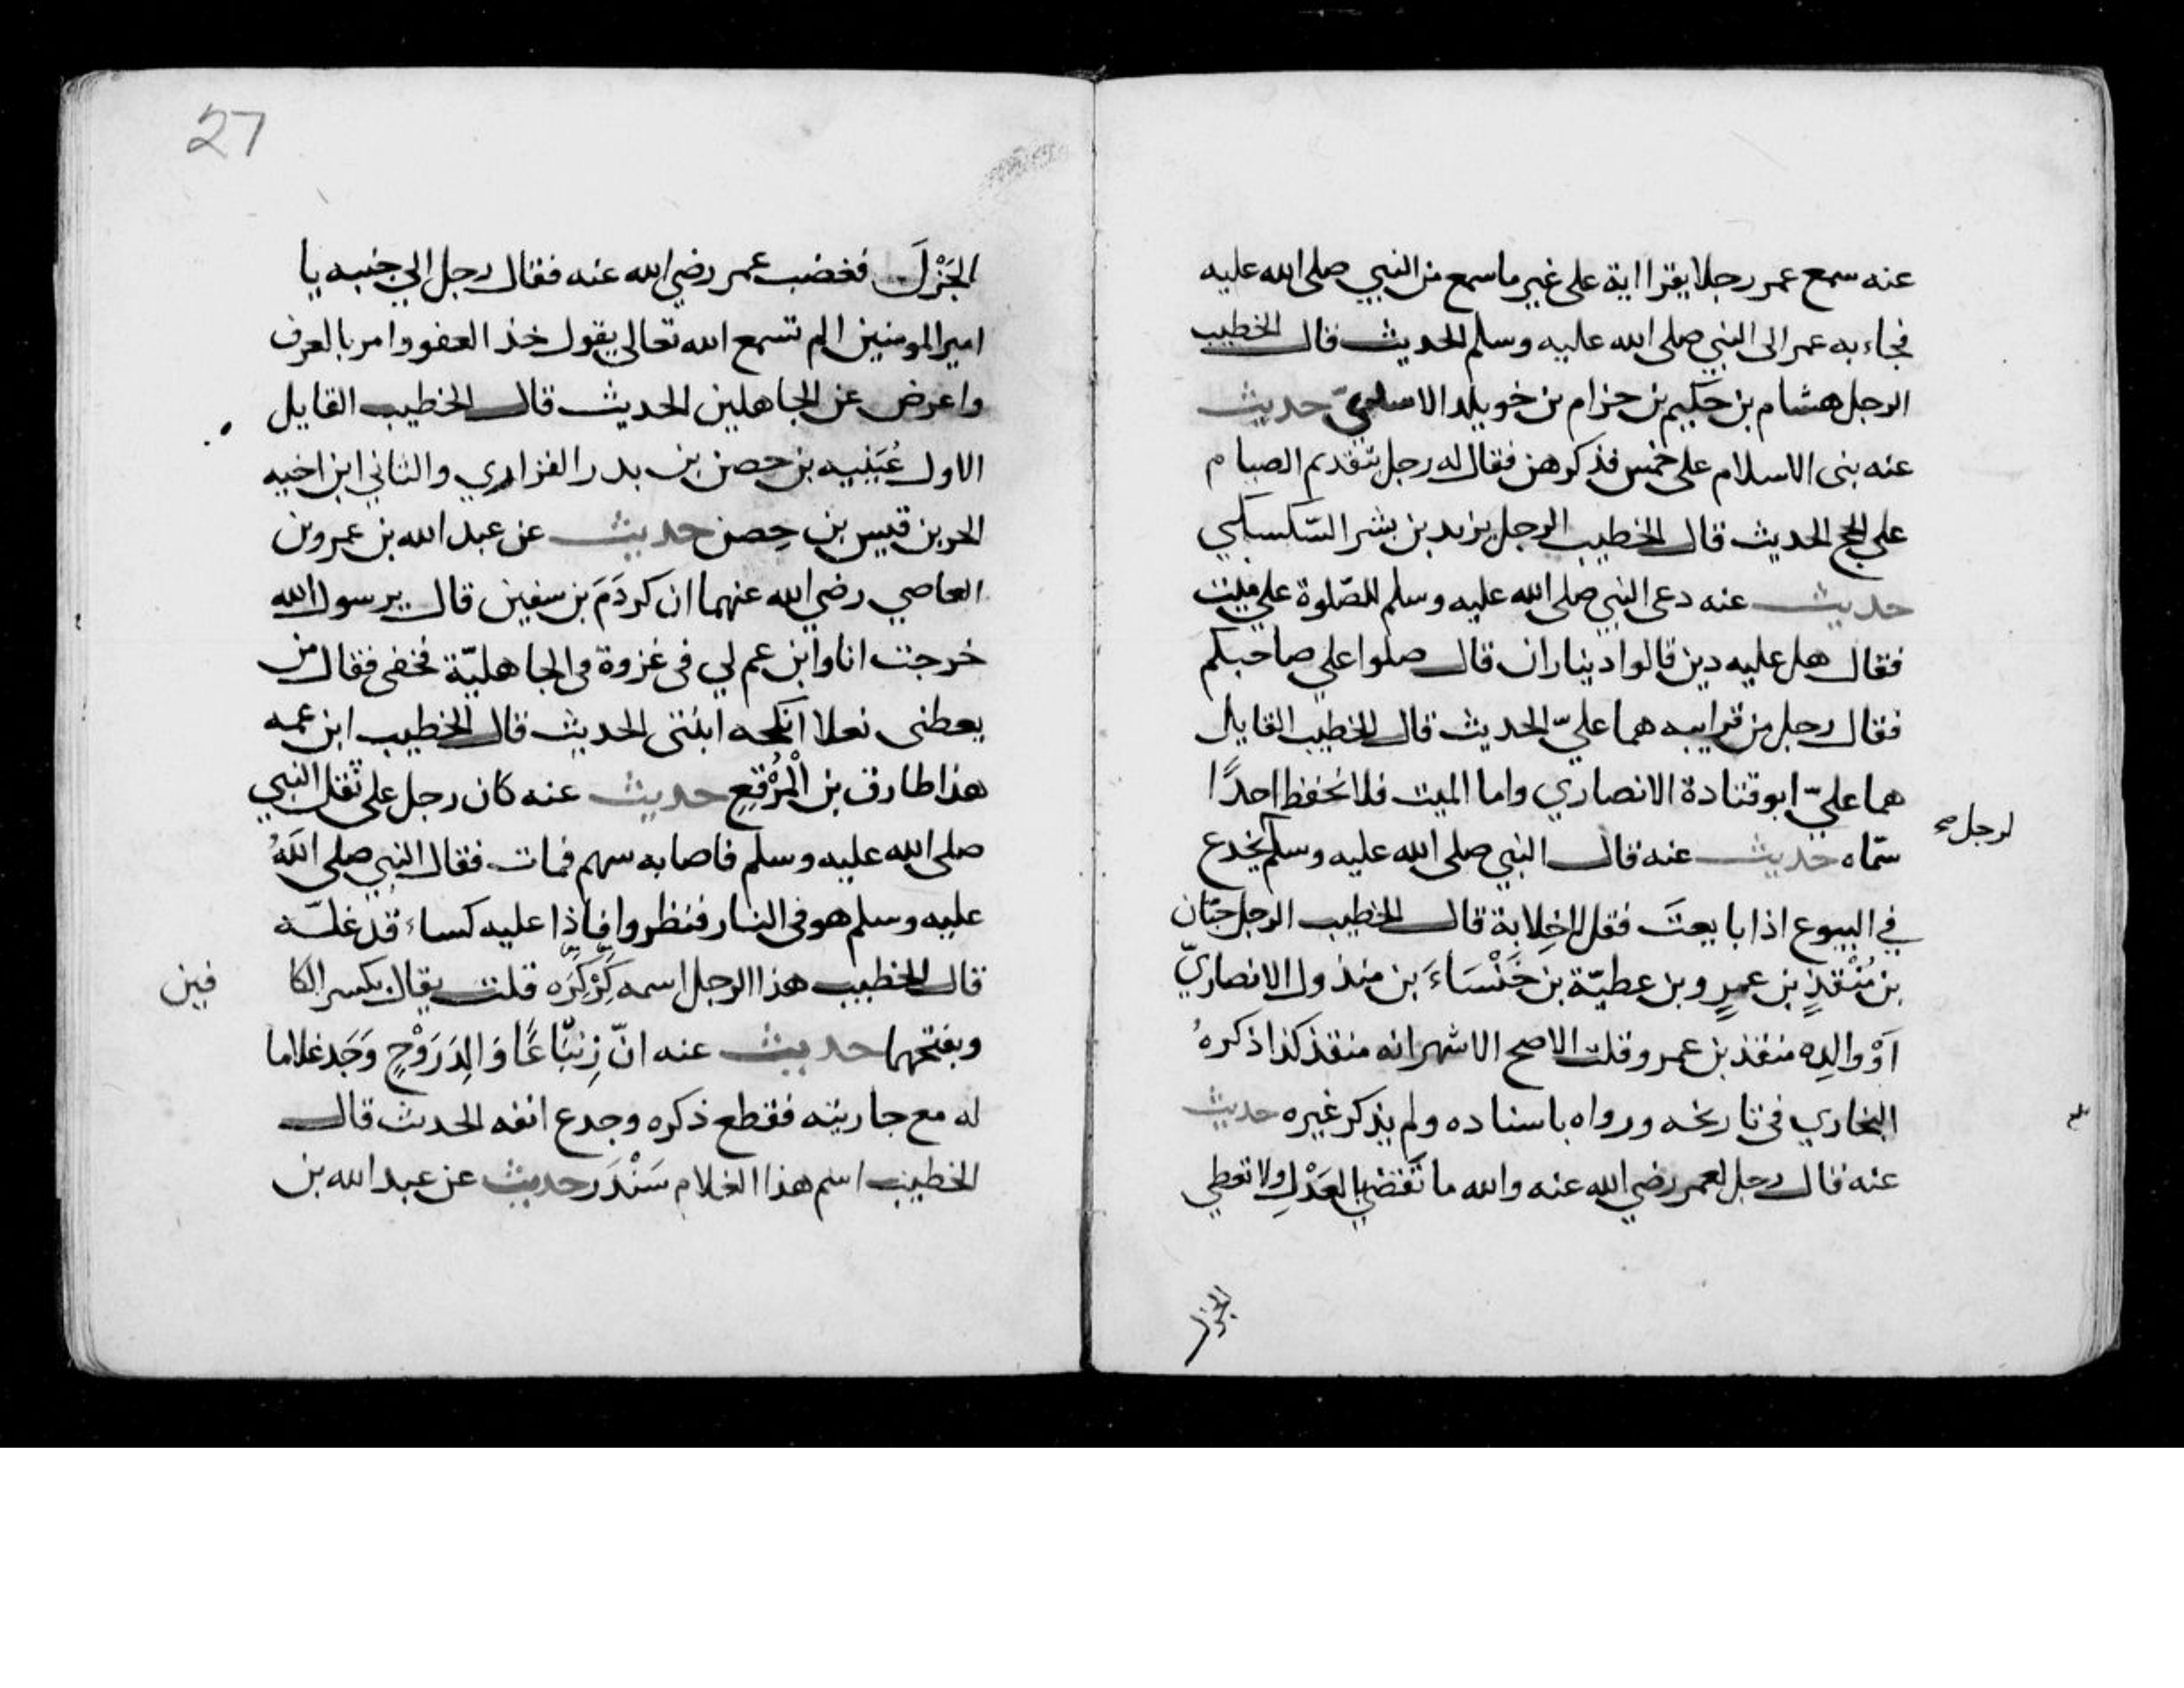 عنه سمع عمر رجلا يقرا اية على غير ما سمع من النبي صلى الله عليه
فجاء به عمر الى النبي صلى الله عليه وسلم الحديث قال الخطيب
الرجل هشام بن حكيم بن حزام بن خويلد الاسلميّ حديث
عنه بنى الاسلام على خمس فذكرهن فقال له رجل تقدم الصيام
على الحج الحديث قال الخطيب الرجل يزيد بن بشر السّكسكي
حديث عنه دعى النبي صلى الله عليه وسلم للصّلوة على ميت
فقال هل عليه دين قالوا ديناران قال صلوا على صاحبكم
فقال رجل من قرابيه هما عليّ الحديث قال الخطيب القايل
هما عليّ ابو قتادة الانصاري واما الميت فلا نحفظ احدًا
سمّاه حديث عنه قال النبي صلى الله عليه وسلم يخدع
لرجل صح
في البيوع اذا بايعتَ فقل لا خِلابة قال الخطيب الرجل حبّان
بن مُنْقذٍ بن عمرٍ و بن عطيّة بن خَنْسَاءَ بن منذول الانصاريّ
اَوْ والِده منقذ بن عمرو قلت الاصح الاشهر انه منقذ كذا ذكرهُ
البخاري في تاريخه ورواه باسناده ولم يذكر غيره حديث
عنه قال رجل لعمر رضي الله عنه والله ما تَقضي بالعَدْلِ ولا تعطي
الجزل
27
الجَزْلَ فغضب عمر رضي الله عنه فقال رجل الي جنبه يا
امير المومنين الم تسمع الله تعالى يقول خذ العفو وامر بالعرف
واعرض عن الجاهلين الحديث قال الخطيب القايل
الاول عُيَيْنيه بن حصن بن بدر الفزاري والثاني ابن اخيه
الحر بن قيس بن حِصن حديث عن عبد الله بن عمرو بن
العاصي رضي الله عنهما ان كردَمَ بن سفين قال يرسول الله
خرجت انا وابن عم لي في غزوة في الجاهليّة فحفى فقال من
يعطنى نعلا انكحه ابنتى الحديث قال الخطيب ابن عمه
هذا طارق بن الْمُرْقعِ حديث عنه كان رجل على ثقل النبي
صلى الله عليه وسلم فاصابه سهم فمات فقال النبي صلى اللهُ
عليه وسلم هو في النار فنظروا فاذا عليه كساء قد غلّه
قال الخطيب هذا الرجل اسمه كِرْكِرَه قلت يقال بكسر الكا
فين
وبفتحهما حديث عنه انّ زِنبّاعًا وَالِدَ رَوْحٍ وَجَد غلاما
له مع جاريته فقطع ذكره وجدع انفه الحدث قال
الخطيب اسم هذا الغلام سَنْدَر حديث عن عبد الله بن